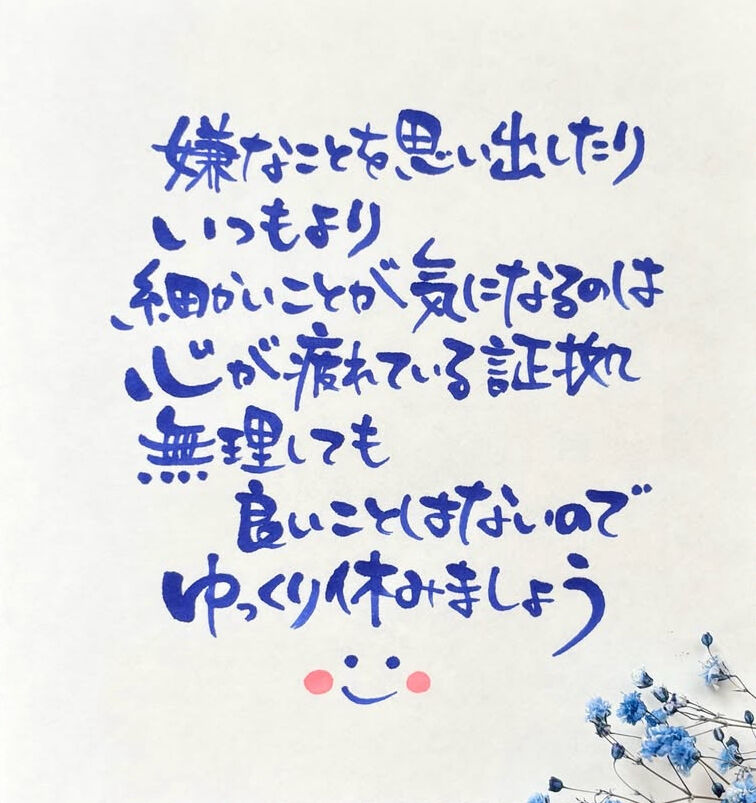 嫌なことを思い出したり
いつもより
細かいことが気になるのは
心が疲れている証拠
無理しても
良いことはないので
ゆっくり休みましょう